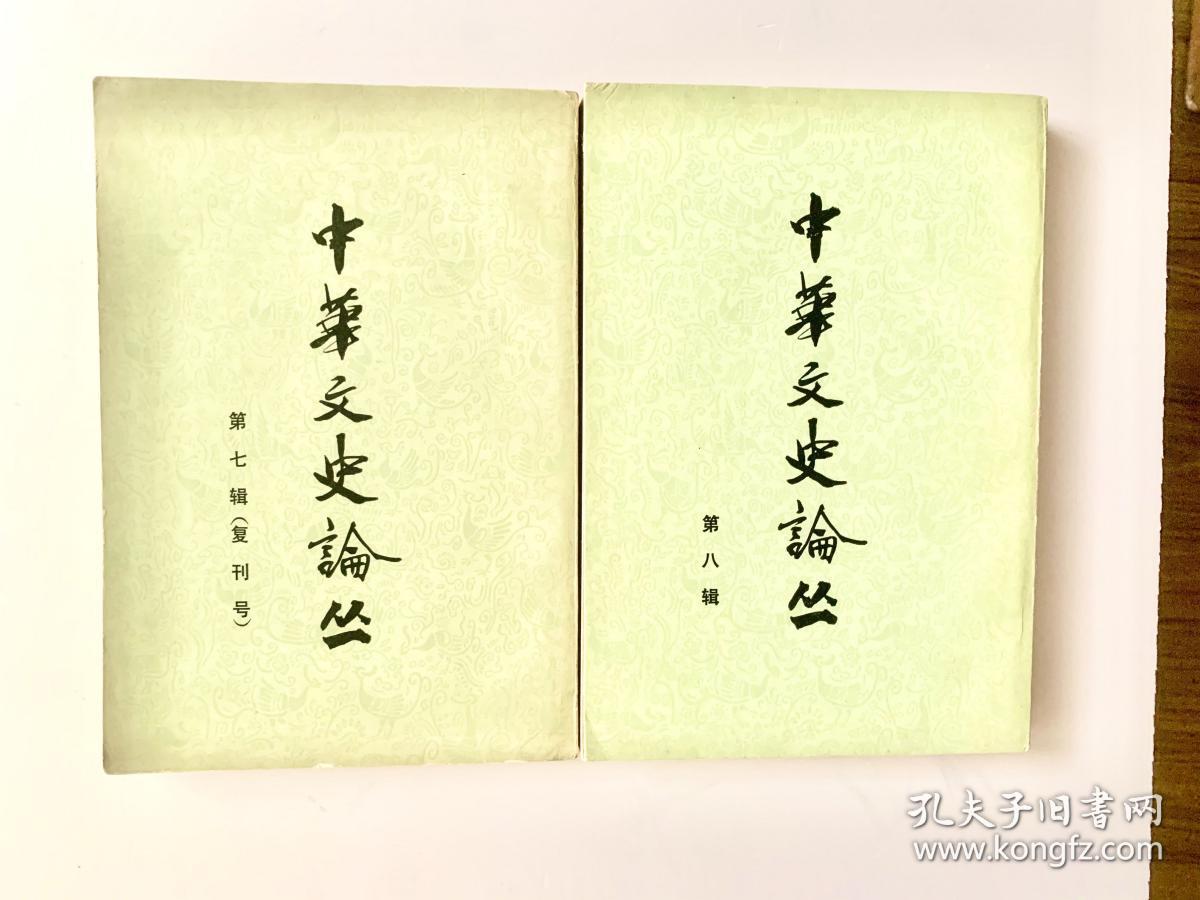 中華文史論丛
第七辑(复刊号)
中華文史論丛
第八辑
孔夫子旧書网
www.kongfz.com